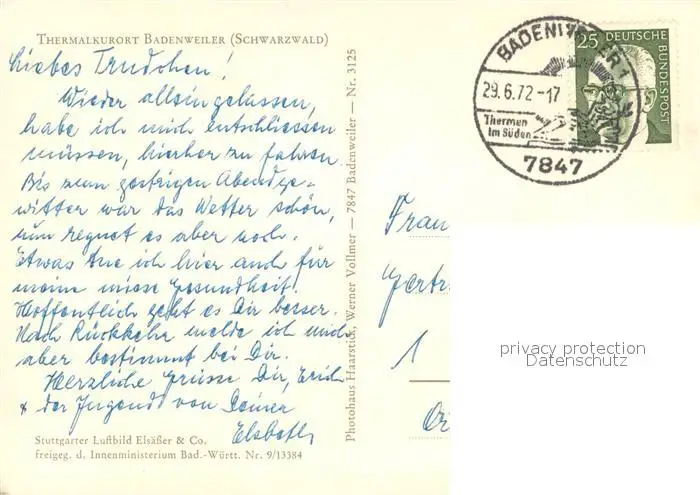 THERMALKURORT BADENWEILER (SCHWARZWALD)
Liebes Trudchen!
Wieder alleingelassen,
habe ich mich entschliessen
müssen, hierher zu fahren.
Bis zum gestrigen Abendge-
witter war das Wetter schön,
nun regnet es aber noch.
Etwas tue ich hier auch für
meine miese Gesundheit.
Hoffentlich geht es Dir besser.
Nach Rückkehr melde ich mich
aber bestimmt bei Dir.
Herzliche Grüsse Dir, Erich
& der Jugend von Deiner
Elsbeth
Stuttgarter Luftbild Elsäßer & Co.
freigeg. d. Innenministerium Bad.-Württ. Nr. 9/13384
Photohaus Haarstick, Werner Vollmer — 7847 Badenweiler — Nr. 3125
BADENWEILER 1
29.6.72-17
Thermen
im Süden
7847
25 DEUTSCHE
BUNDESPOST
Frau
Gertr
1
privacy protection
Datenschutz